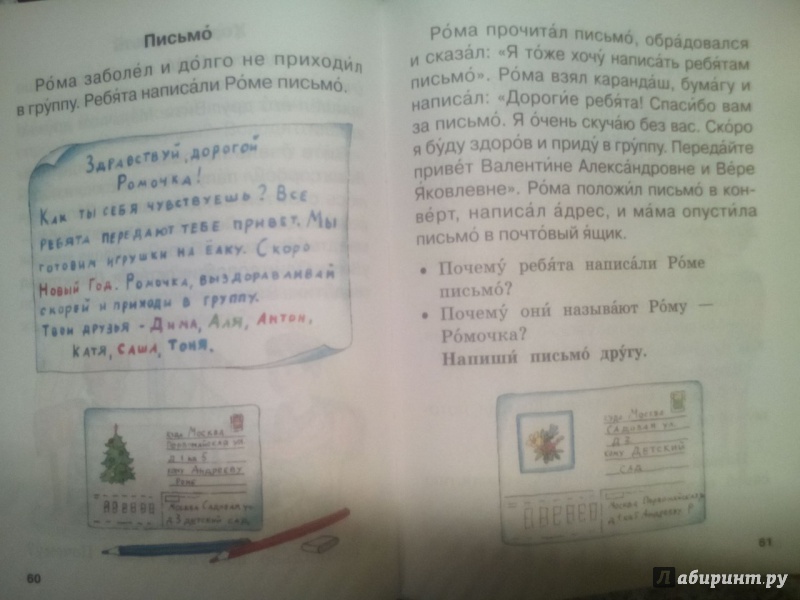 Письмо́
Ро́ма заболе́л и до́лго не приходи́л
в гру́ппу. Ребя́та написа́ли Ро́ме письмо́.
Здравствуй, дорогой
Ромочка!
Как ты себя чувствуешь? Все
ребята передают тебе привет. Мы
готовим игрушки на ёлку. Скоро
Новый Год. Ромочка, выздоравливай
скорей и приходи в группу.
Твои друзья - Дима, Аля, Антон,
Катя, Саша, Тоня.
куда Москва
Первомайская ул.
кому Андрееву
Роме
Москва Садовая ул.
д 3 детский сад
60
Ро́ма прочита́л письмо́, обра́довался
и сказа́л: «Я то́же хочу́ написа́ть ребя́там
письмо́». Ро́ма взял каранда́ш, бума́гу и
написа́л: «Дороги́е ребя́та! Спаси́бо вам
за письмо́. Я о́чень скуча́ю без вас. Ско́ро
я бу́ду здоро́в и приду́ в гру́ппу. Переда́йте
приве́т Валенти́не Алекса́ндровне и Ве́ре
Я́ковлевне». Ро́ма положи́л письмо́ в кон-
ве́рт, написа́л а́дрес, и ма́ма опусти́ла
письмо́ в почто́вый я́щик.
• Почему́ ребя́та написа́ли Ро́ме
письмо́?
• Почему́ они́ называ́ют Ро́му —
Ро́мочка?
Напиши́ письмо́ дру́гу.
куда Москва
Садовая ул.
кому Детский
сад
Москва
Андрееву Р.
61
Лабиринт.ру